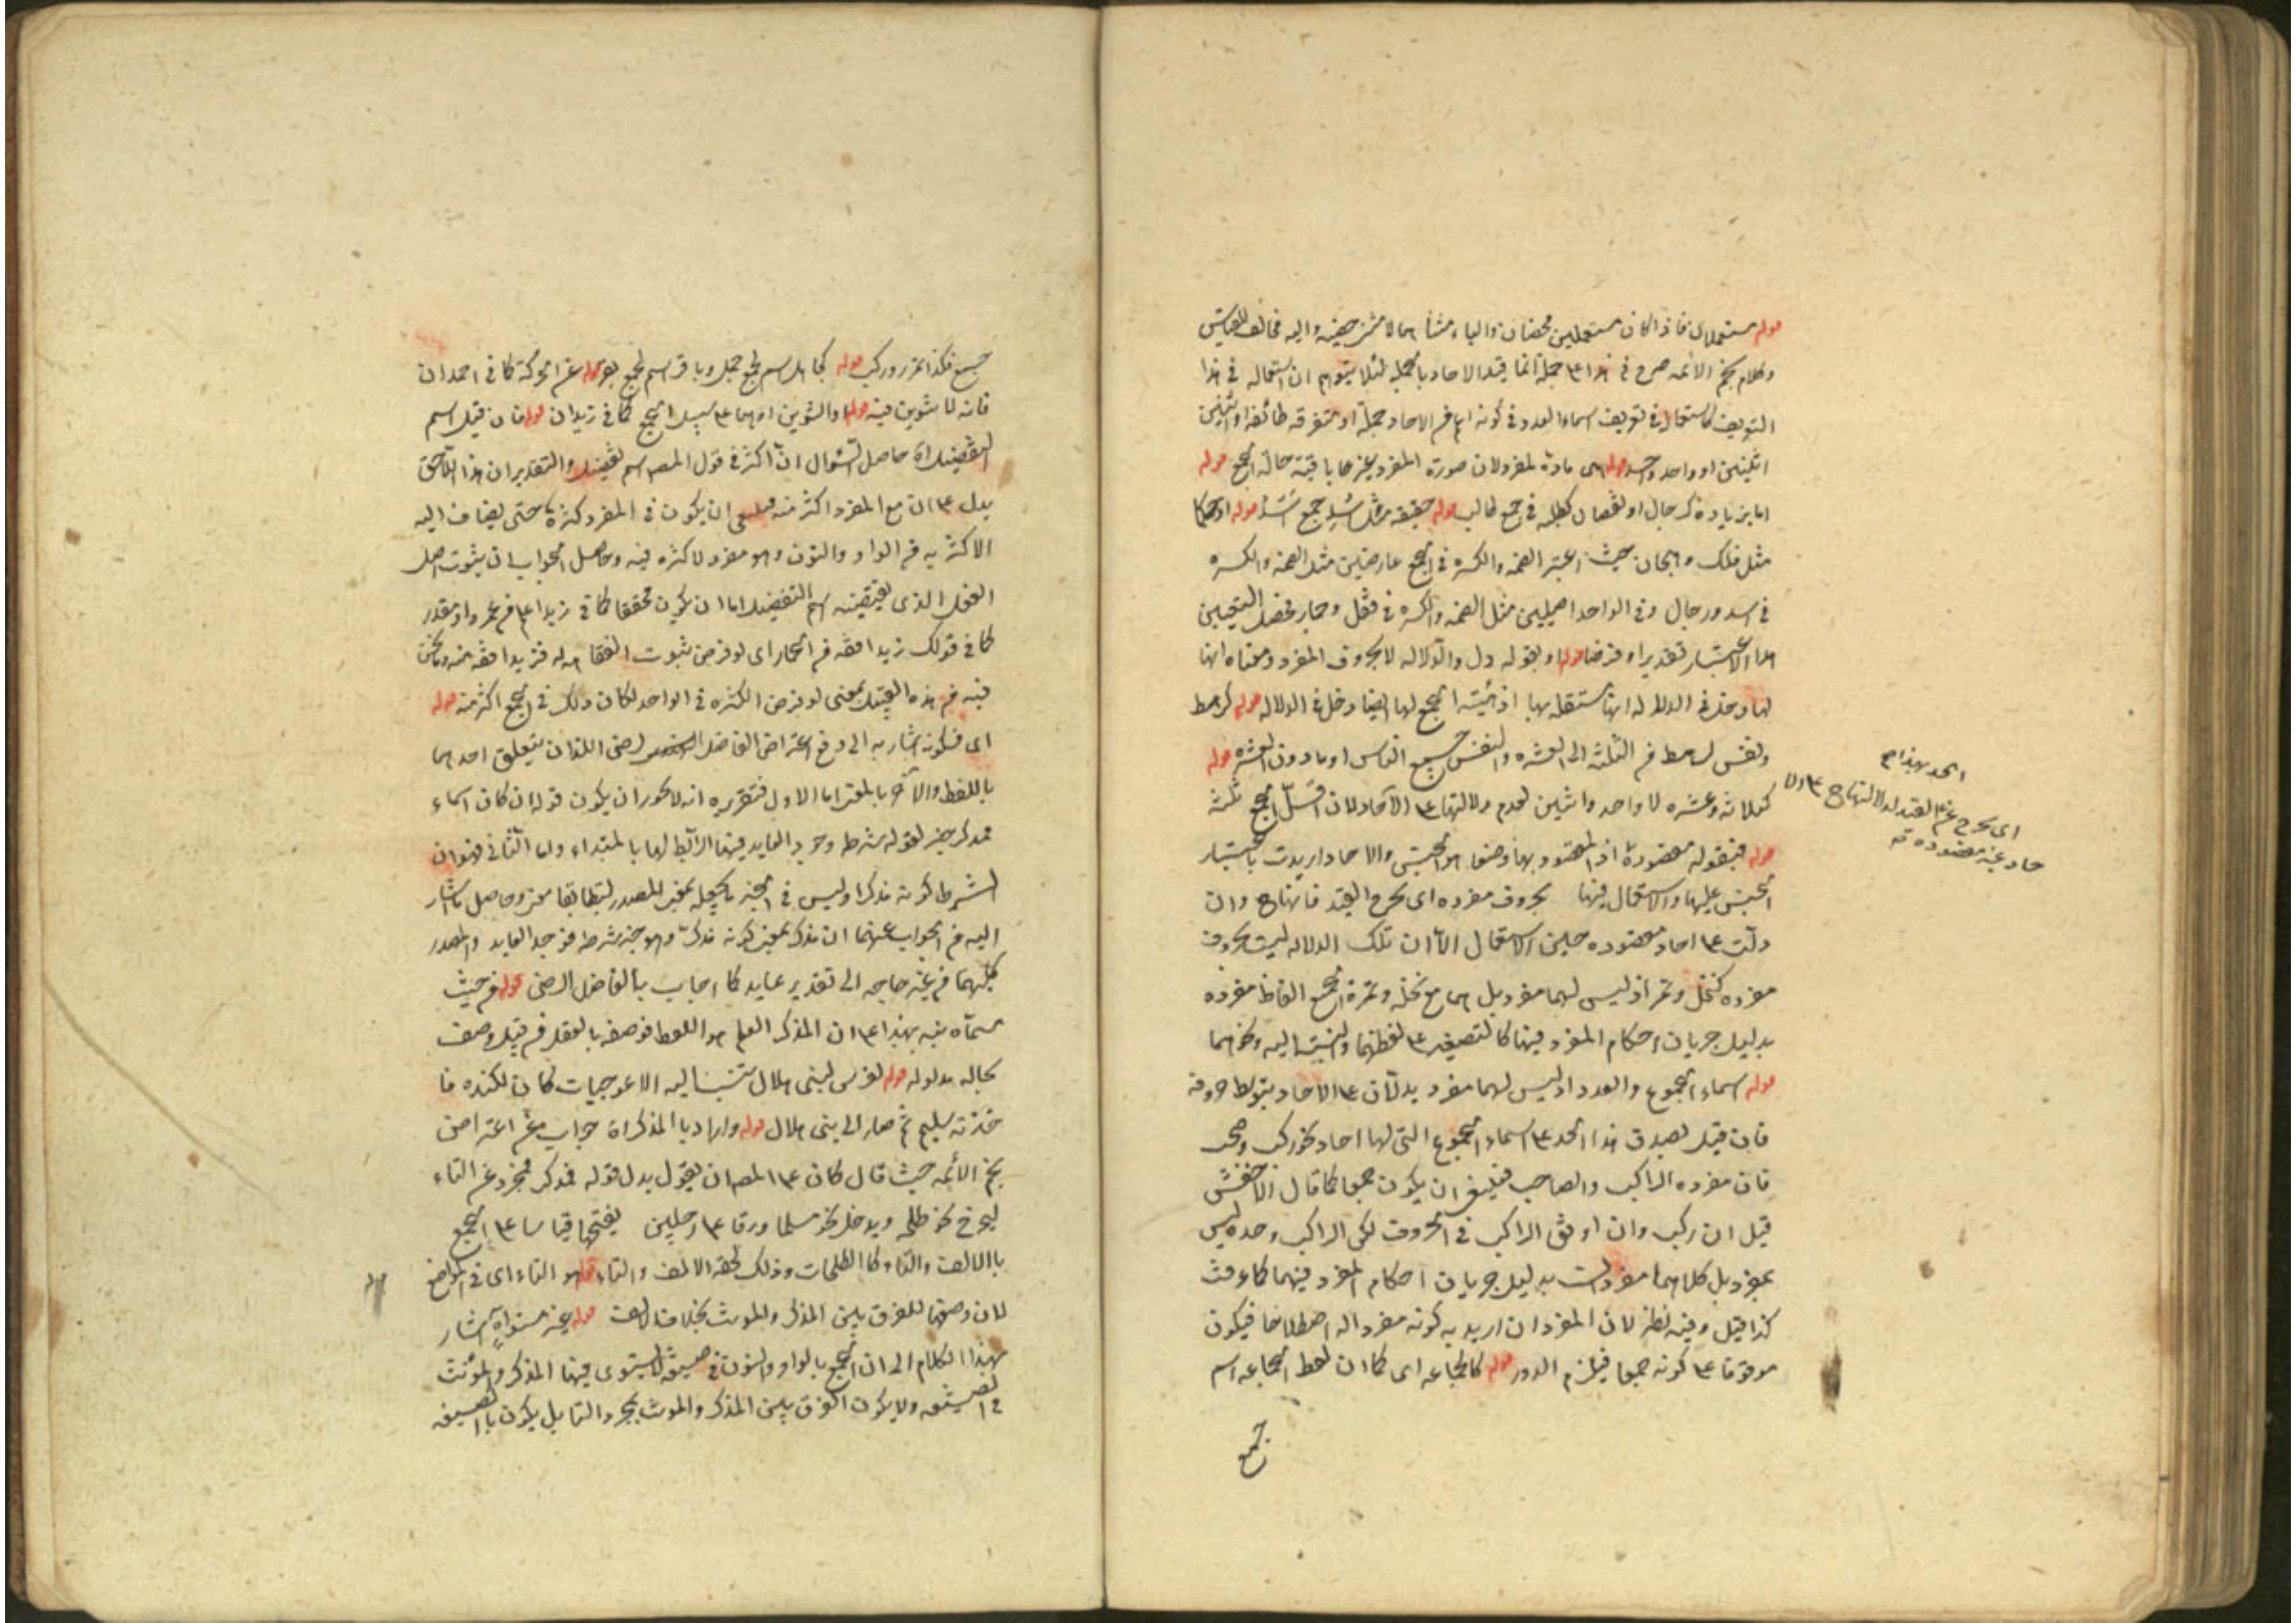 قوله مستعملان فاذا كان مستعملين محضان والياء مشابهما لا مشر حينه واليه مخالف للقياس
وكلام نجم الائمه صرح في هذا ع‍ جملة انما قيد الاحاد بالجملة لئلا يتوهم ان استعماله في هذا
التعريف كاستعماله في تعريف اسماء العدد في كونه اعم من الاحاد جملة او متفرقه طائفة او اثنين
اثنين او واحد واحد قوله هى مادة لمفرد لان صورة المفرد بعينها باقية حالة الجمع قوله
اما بزيادة كرجال او نقصان ككتب في جمع كتاب قوله حقيقة مثل اسد جمع اسد قوله او حكما
مثل فلك وهجان حيث اعتبر الضمه والكسره في الجمع عارضين مثل الضمه والكسره
في اسد ورجال وفي الواحد اصليين مثل الضمه والكسره في قفل وحمار فحصل التغيير
بهذا الاعتبار تقديرا وفرضا قوله او بقوله دل والدلاله لا بحروف المفرد ومعناه انها
لها دخل في الدلالة لا انها مستقله بها اذ هيئته الجمع لها ايضا دخل في الدلاله قوله كرهط
ونفس الرهط من الثلثه الى العشره والنفس جميع الناس او ما دون العشره قوله
كثلاثه وعشره لا واحد واثنين لعدم دلالتها ع‍ الآحاد لان اقل الجمع ثلثه
قوله فبقوله مقصودة اذ المقصود بها وضعا هو الجنس والاحاد اريدت باعتبار
الجنس عليها والاستعمال فيها بحروف مفرده اى يخرج بالقيد فانها وان
دلت ع‍ احاد مقصوده حين الاستعمال الا ان تلك الدلاله ليست بحروف
مفرده كنخل وتمر اذ ليس لهما مفرد بل هما مع نخلة وتمرة الجمع الفاظ مفرده
بدليل جريان احكام المفرد فيها كالتصغير ع‍ لفظهما والنسبة اليه ونحوهما
قوله اسماء الجموع والعدد اذ ليس لهما مفرد يدلان ع‍ الاحاد بتوسط حروفه
فان قيل يصدق هذا الحد ع‍ اسماء الجموع التى لها احاد نحو ركب وصحب
فان مفرده الراكب والصاحب فينبغى ان يكون جمعا كما قال الاخفش
قيل ان ركب وان اوفق الراكب في الحروف لكن الراكب وحده ليس
بمفرد بل كلاهما مفردات بدليل جريان احكام المفرد فيهما كما عرفت
كذا قيل وفيه نظر لان المفرد ان اريد به كونه مفردا له اصطلاحا فيكون
موقوفا ع‍ كونه جمعا فيلزم الدور قوله كالجماعه اى كما ان لفظ الجماعه اسم
جمع
الحد بهذا
اى يخرج عن القيد
حاد غير مقصوده
جمع فكذا تمر وركب قوله كجامل اسم لجمع جمل وباقر اسم لجمع بقر قوله عن الحركة كما في احمدان
فانه لا تنوين فيه قوله والتنوين او هما ع‍ سبيل الجمع كما في زيدان قوله فان قيل اسم
التفضيل اه حاصل السؤال ان اكثر في قول المصـ اسم تفضيل والتقدير ان هذا اللاحق
يدل ع‍ ان مع المفرد اكثر منه فينبغى ان يكون في المفرد كثرة حتى يضاف اليه
الاكثريه من الواو والنون وهو مفرد لا كثره فيه وحاصل الجواب ان ثبوت اصل
الفعل الذى يقتضيه اسم التفضيل اما ان يكون محققا كما في زيد اعلم من عمرو او مقدر
كما في قولك زيد افقه من الحمار اى لو فرض ثبوت الفقاهه له فزيد افقه منه وما نحن
فيه من هذه القبيل بمعنى لو فرض الكثره في الواحد لكان ذلك في الجمع اكثر منه قوله
اى فكونه اشار به الى دفع اعتراض الفاضل الرضى اللذان يتعلق احدهما
باللفظ والآخر بالمعنى اما الاول فتقريره انه لا يجوز ان يكون قوله ان كان اسماء
فمذكر خبر لقوله شرطه وجود العايد فيها الرابط لها بالمبتداء واما الثانى فهو ان
الشرط كونه مذكرا وليس في الخبر ما يجعله بمعنى المصدر ليتطابقا معنى وحاصل ما اشار
اليه من الجواب عنهما ان مذكر بمعنى كونه مذكر وهو خبر شرطه فوجد العايد والمصدر
كليهما من غير حاجه الى تقدير عايد كما اجاب بالفاضل الرضى قوله من حيث
مسماه نبه بهذا ع‍ ان المذكر العلم هو اللفظ فوصفه بالعقل من قبيل وصف
بحاله مدلوله قوله لفرس لبنى هلال تنسب اليه الاعوجيات كان لكنده فا
خذته سليم ثم صار الى بنى هلال قوله واراد بالمذكر اه جواب عن اعتراض
نجم الائمه حيث قال كان ع‍ المصـ ان يقول بدل قوله فمذكر فمجرد عن التاء
ليخرج نحو طلحه ويدخل نحو سلما ورقا ع‍ رجلين بفتحها قياسا ع‍ الجمع
باالالف والتاء كما الطلحات وذلك لحقه الالف والتاء قوله هو التاء اى في المواضع
لان وضعها للفرق بين المذكر والمونث بخلاف الالف قوله غير مستو اه اشار
بهذا الكلام الى ان الجمع بالواو والنون في صيغة لا يستوى فيها المذكر والمؤنث
في الصيغه ولا يكون الفرق بين المذكر والمونث بمجرد التا بل يكون باالصيغه